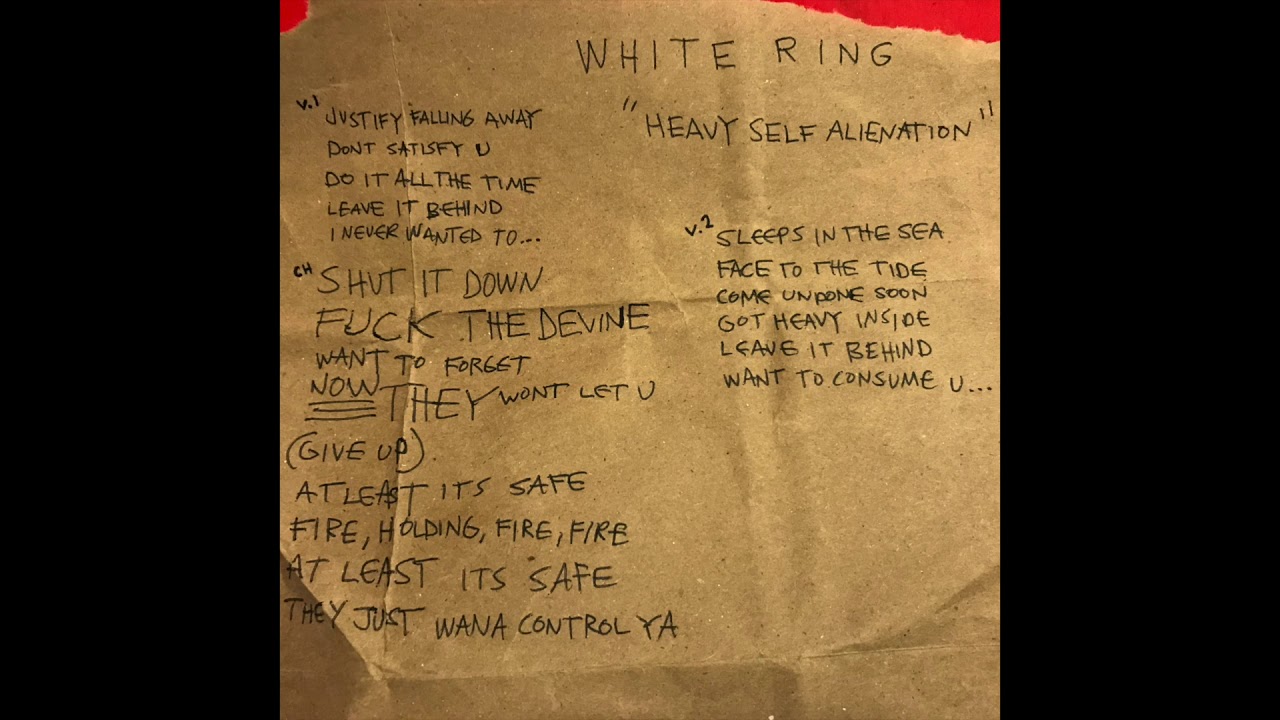 WHITE RING
"HEAVY SELF ALIENATION"
V.1 JUSTIFY FALLING AWAY
DONT SATISFY U
DO IT ALL THE TIME
LEAVE IT BEHIND
I NEVER WANTED TO...
CH SHUT IT DOWN
FUCK THE DEVINE
WANT TO FORGET
NOW THEY WONT LET U
(GIVE UP)
AT LEAST ITS SAFE
FIRE, HOLDING, FIRE, FIRE
AT LEAST ITS SAFE
THEY JUST WANA CONTROL YA
V.2 SLEEPS IN THE SEA
FACE TO THE TIDE
COME UNDONE SOON
GOT HEAVY INSIDE
LEAVE IT BEHIND
WANT TO CONSUME U...